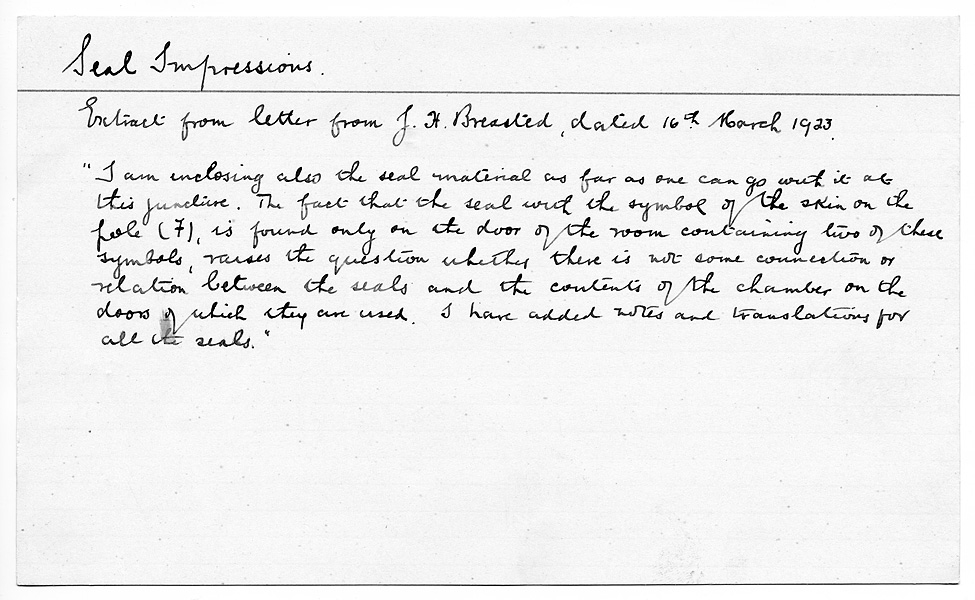 Seal Impressions.
Extract from letter from J. H. Breasted, dated 16th March 1923.
"I am enclosing also the seal material as far as one can go with it at
this juncture. The fact that the seal with the symbol of the skin on the
pole (7), is found only on the door of the room containing two of these
symbols, raises the question whether there is not some connection or
relation between the seals and the contents of the chamber on the
doors of which they are used. I have added notes and translations for
all the seals."